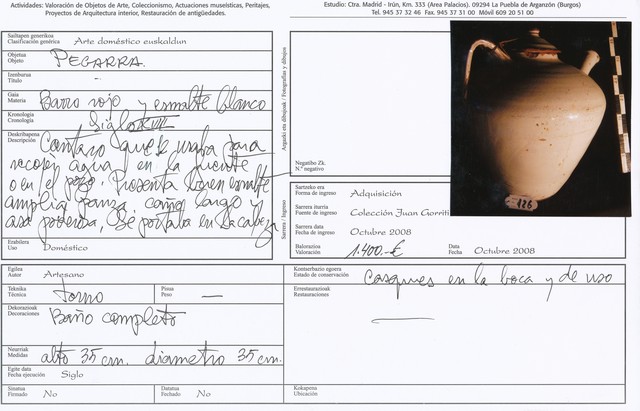 Actividades: Valoración de Objetos de Arte, Coleccionismo, Actuaciones museísticas, Peritajes,
Proyectos de Arquitectura interior, Restauración de antigüedades.
Estudio: Ctra. Madrid - Irún, Km. 333 (Area Palacios). 09294 La Puebla de Arganzón (Burgos)
Tel. 945 37 32 46 Fax. 945 37 31 00 Móvil 609 20 51 00
Sailtapen generikoa
Clasificación genérica Arte doméstico euskaldun
Objetua
Objeto PEGARRA.
Izenburua
Título -
Gaia
Materia Barro rojo y esmalte blanco
Kronologia
Cronología Siglo XVII
Deskribapena
Descripción Cantaro que se usaba para
recoger agua en la fuente
o en el pozo. Presenta buen esmalte
amplia panza, caño largo y
asa poderosa, Se portaba en la cabeza
Erabilera
Uso Doméstico
Argazki eta dibujoak / Fotografías y dibujos
Negatibo Zk.
N.º negativo
126
Sarrera / Ingreso
Sartzeko era
Forma de ingreso Adquisición
Sarrera iturria
Fuente de ingreso Colección Juan Gorriti
Sarrera data
Fecha de ingreso Octubre 2008
Balorazioa
Valoración 1.400.-€
Data
Fecha Octubre 2008
Egilea
Autor Artesano
Teknika
Técnica torno
Pisua
Peso —
Dekorazioak
Decoraciones Baño completo
Neurriak
Medidas alto 35 cm. diametro 35 cm.
Egite data
Fecha ejecución Siglo
Sinatua
Firmado No
Datatua
Fechado No
Kontserbazio egoera
Estado de conservación Casques en la boca y de uso
Errestaurazioak
Restauraciones —
Kokapena
Ubicación